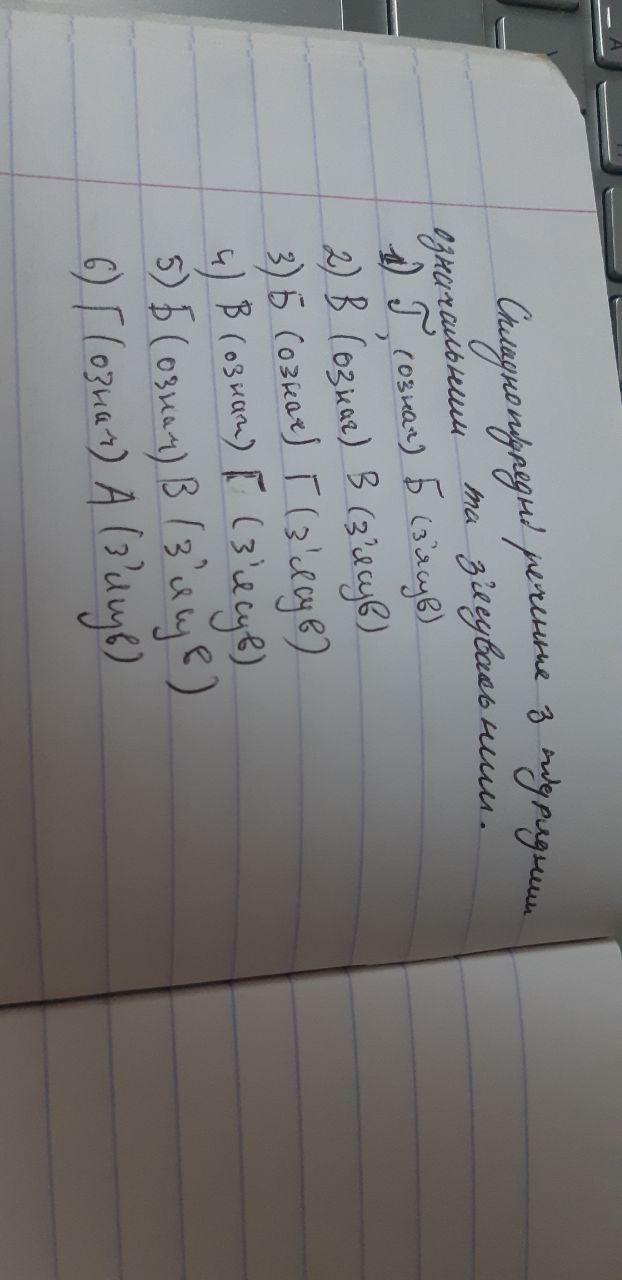 Складнопідрядні речення з підрядним
означальним та з'ясувальним.
1) Г, (означ) Б (з'ясув)
2) В (означ) В (з'ясув)
3) Б (означ) Г (з'ясув)
4) В (означ) Г (з'ясув)
5) Б (означ) В (з'ясув)
6) Г (означ) А (з'ясув)